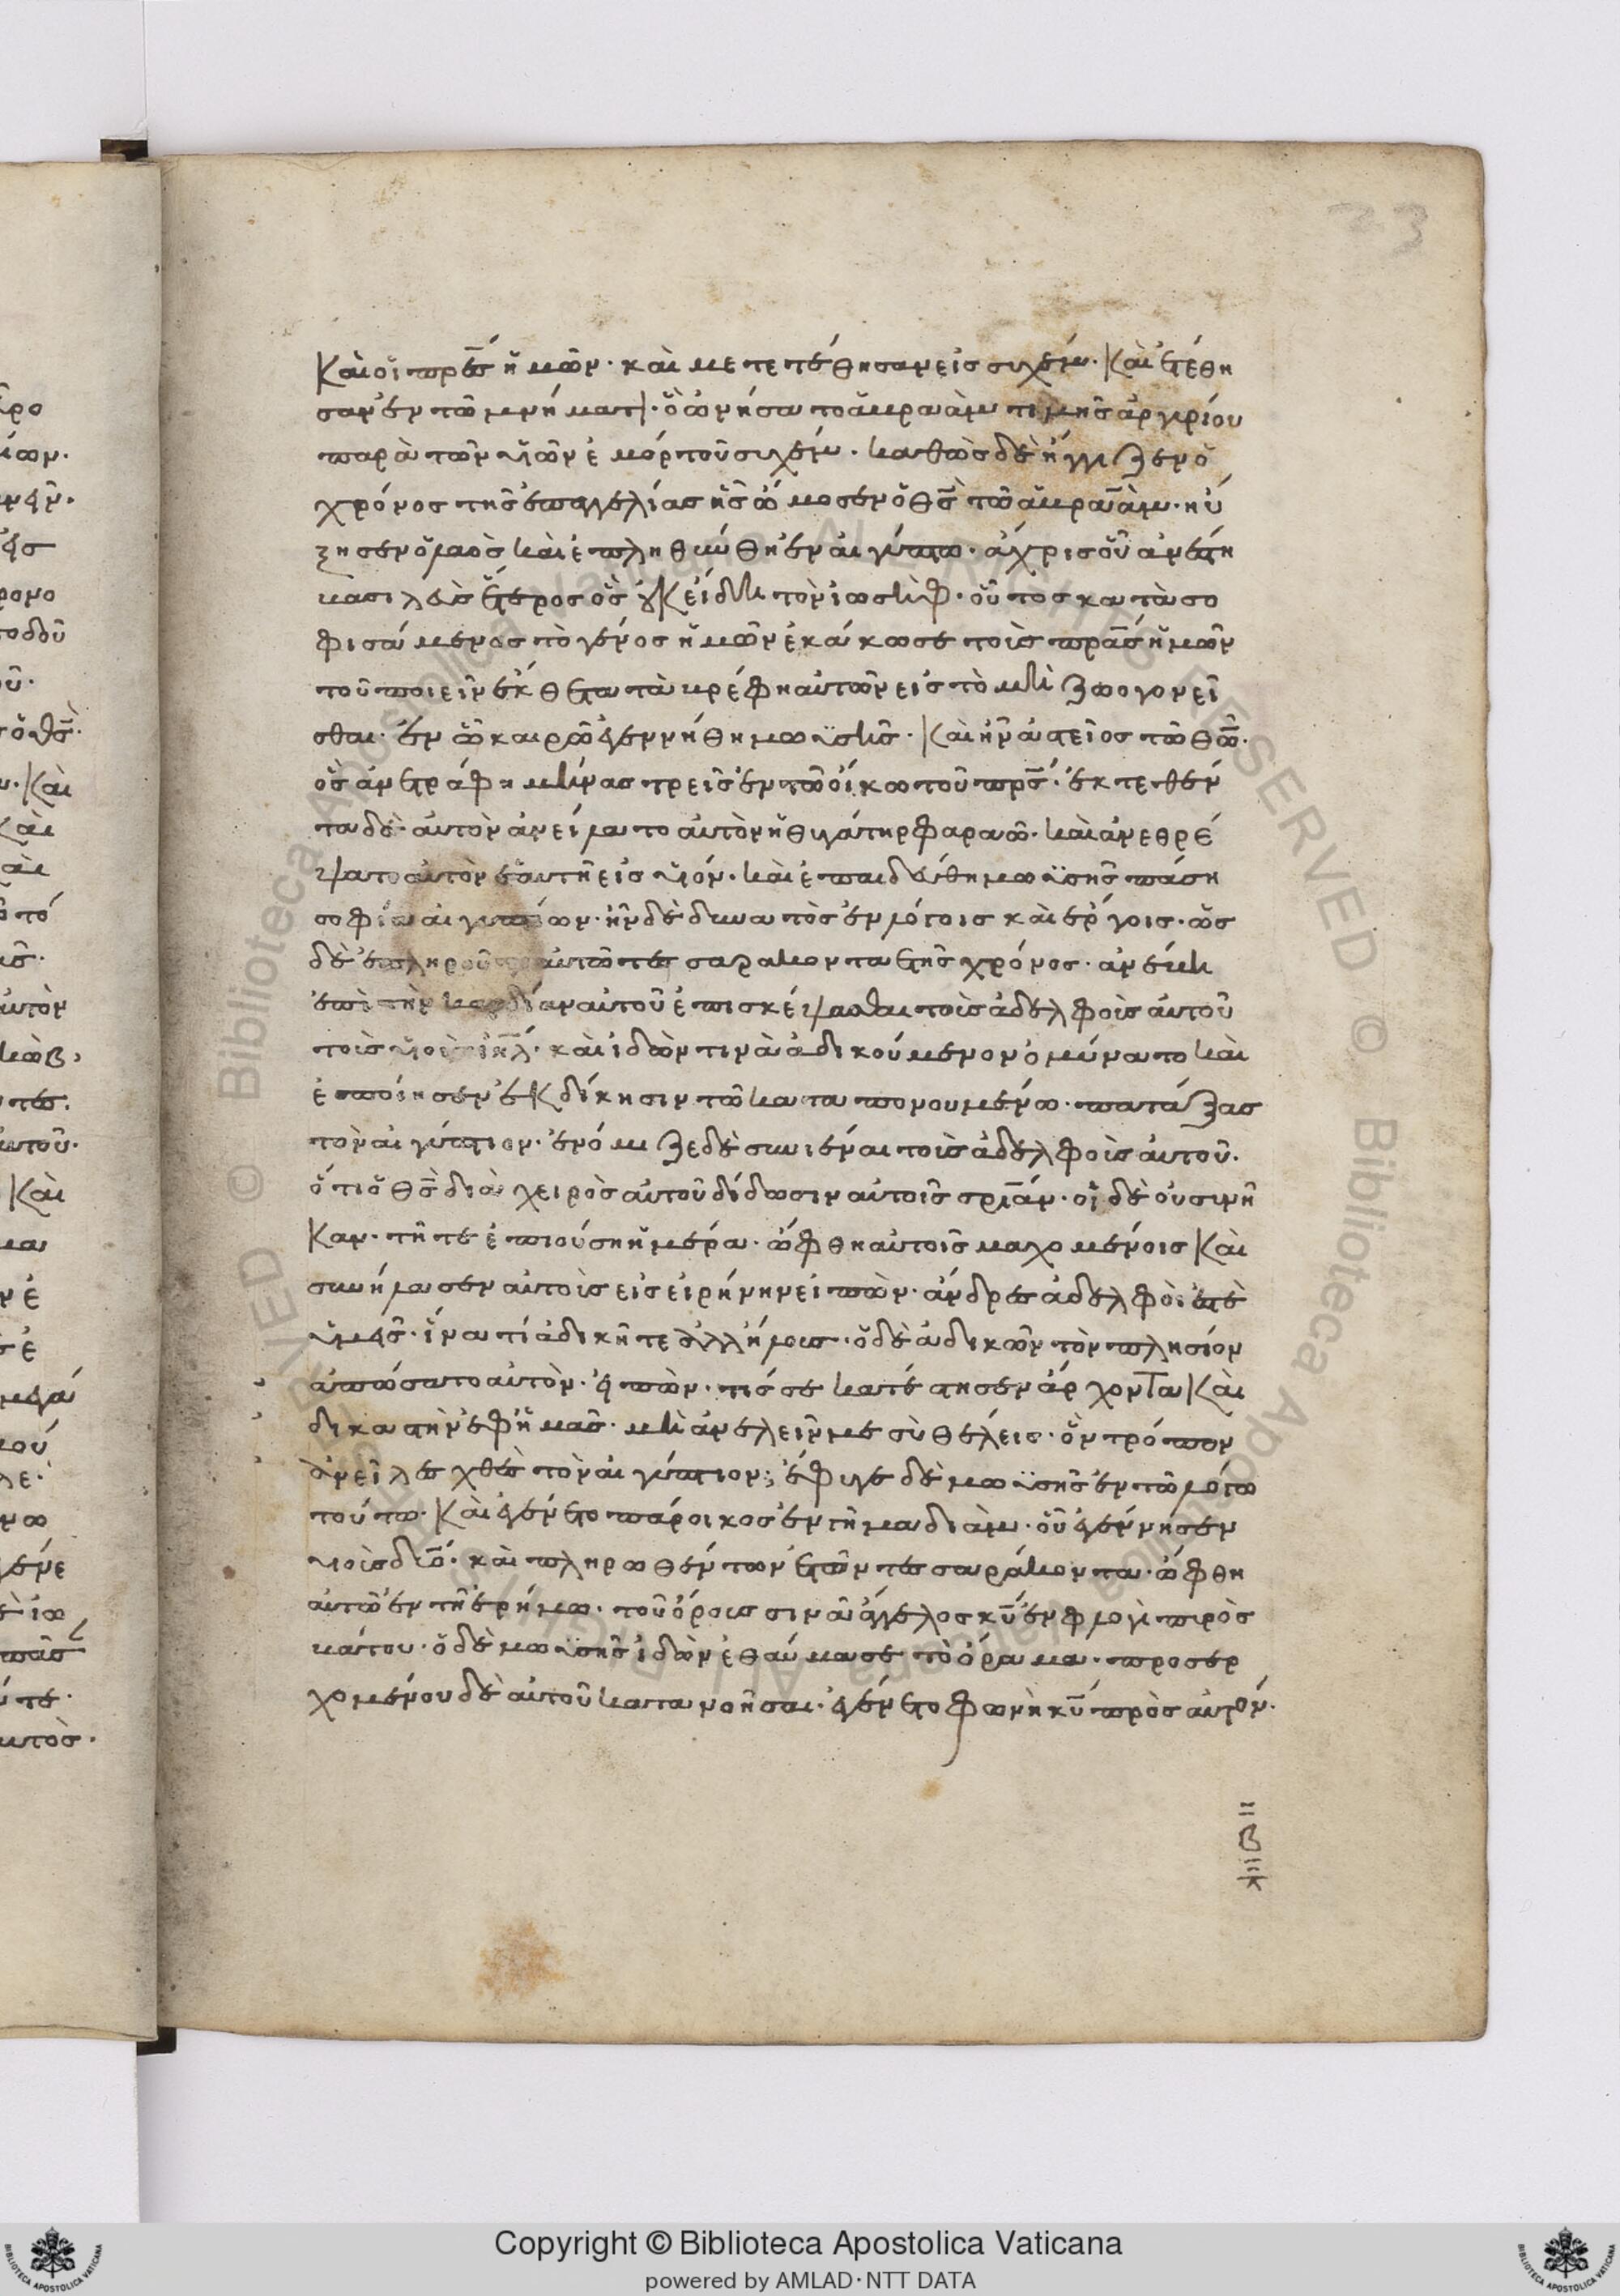 καὶ οἱ πρ̅ε̅ς ἡμῶν· καὶ μετετέθησαν εἰς συχέμ· καὶ ἐτέθη
σαν ἐν τῶ μνήματι· ὃ ὠνήσατο ἁβραὰμ τιμῆς ἀργυρίου
παρὰ τῶν υἱῶν ἐμόρ τοῦ συχέμ· καθὼς δὲ ἤγγιζεν ὁ
χρόνος τῆς ἐπαγγελίας ἧς ὤμοσεν ὁ θ̅ς̅ τῶ ἁβραὰμ· ηὔ
ξησεν ὁ λαὸς καὶ ἐπληθύνθη ἐν αἰγύπτω· ἄχρις οὗ ἀνέστη
βασιλεὺς ἕτερος ὃς οὐκ εἴδη τὸν ἰωσήφ· οὗτος κατασο
φισάμενος τὸ γένος ἡμῶν ἐκάκωσε τοὺς πρ̅α̅ς ἡμῶν
τοῦ ποιεῖν ἔκθετα τὰ βρέφη αὐτῶν εἰς τὸ μὴ ζωογονεῖ
σθαι· ἐν ᾧ καιρῶ ἐγεννήθη μωϋσῆς· καὶ ἦν ἀστεῖος τῶ θ̅ω̅·
ὃς ἀνετράφη μῆνας τρεῖς ἐν τῶ οἴκω τοῦ πρ̅ς̅· ἐκτεθέν
τα δὲ αὐτὸν ἀνείλατο αὐτὸν ἡ θυγάτηρ φαραώ· καὶ ἀνεθρέ
ψατο αὐτὸν ἑαυτῆ εἰς υἱόν· καὶ ἐπαιδεύθη μωϋσῆς πάση
σοφία αἰγυπτίων· ἦν δὲ δυνατὸς ἐν λόγοις καὶ ἔργοις· ὡς
δὲ ἐπληροῦτο αὐτῶ τεσσαρακονταετὴς χρόνος· ἀνέβη
ἐπὶ τὴν καρδίαν αὐτοῦ ἐπισκέψασθαι τοὺς ἀδελφοὺς αὐτοῦ
τοὺς υἱοὺς ι̅η̅λ̅· καὶ ἰδών τινα ἀδικούμενον ὀμύνατο καὶ
ἐποίησεν ἐκδίκησιν τῶ καταπονουμένω· πατάξας
τὸν αἰγύπτιον· ἐνόμιζε δὲ συνιέναι τοὺς ἀδελφοὺς αὐτοῦ·
ὅτι ὁ θ̅ς̅ διὰ χειρὸς αὐτοῦ δίδωσιν αὐτοῖς σρ̅ι̅αν· οἱ δὲ οὐ συνῆ
καν· τῆ τε ἐπιούση ἡμέρα· ὤφθη αὐτοῖς μαχομένοις καὶ
συνήλασεν αὐτοὺς εἰς εἰρήνην εἰπών· ἄνδρες ἀδελφοὶ ἐστὲ
ὑμεῖς· ἵνα τί ἀδικῆτε ἀλλήλους· ὁ δὲ ἀδικῶν τὸν πλησίον
ἀπώσατο αὐτὸν· εἰπὼν· τίς σε κατέστησεν ἄρχοντα καὶ
δικαστὴν ἐφ ἡμᾶς· μὴ ἀνελεῖν με σὺ θέλεις· ὃν τρόπον
ἀνεῖλες χθὲς τὸν αἰγύπτιον; ἔφυγε δὲ μωϋσῆς ἐν τῶ λόγω
τούτω· καὶ ἐγένετο πάροικος ἐν τῆ μαδιάμ· οὗ ἐγέννησεν
υἱοὺς δύο· καὶ πληρωθέντων ἐτῶν τεσσαράκοντα· ὤφθη
αὐτῶ ἐν τῆ ἐρήμω· τοῦ ὄρους σινᾶ ἄγγελος κ̅υ̅ ἐν φλογὶ πυρὸς
βάτου· ὁ δὲ μωϋσῆς ἰδὼν ἐθαύμασε τὸ ὅραμα· προσερ
χομένου δὲ αὐτοῦ κατανοῆσαι· ἐγένετο φωνὴ κ̅υ̅ πρὸς αὐτόν·